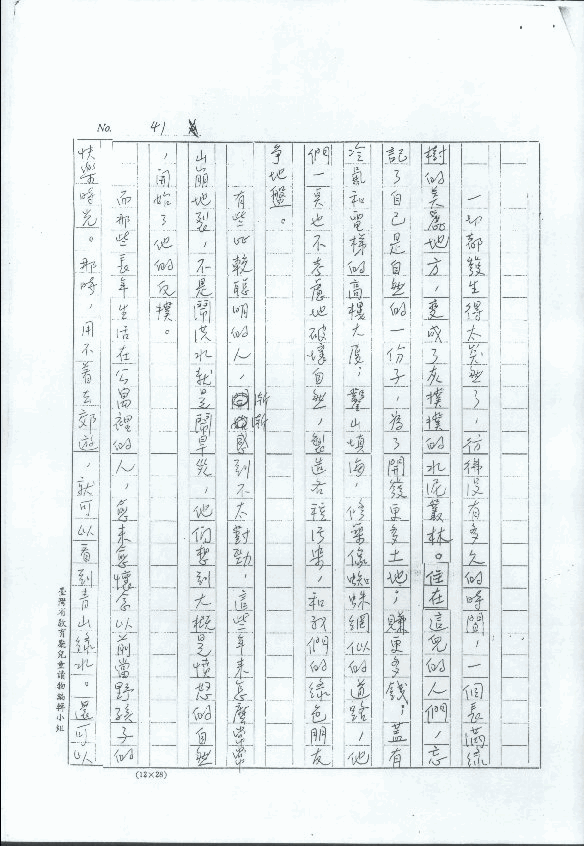 No. 41
一切都發生得太突然了，彷彿沒有多久的時間，一個長滿綠
樹的美麗地方，變成了灰撲撲的水泥叢林。住在這兒的人們，忘
記了自己是自然的一份子，為了開發更多土地；賺更多錢；蓋有
冷氣和電梯的高樓大廈；鑿山填海，修築像蜘蛛網似的道路，他
們一點也不考慮地破壞自然，製造各種污染，和我們的綠色朋友
爭地盤。
有些比較聰明的人，漸漸感到不太對勁，這些年來怎麼常常
山崩地裂，不是鬧洪水就是鬧旱災，他們想到大概是憤怒的自然
，開始了他的反撲。
而那些長年生活在公寓裡的人，愈來愈懷念以前當野孩子的
快樂時光。那時，用不着去郊遊，就可以看到青山綠水。還可以
臺灣省教育廳兒童讀物編輯小組
(12×28)